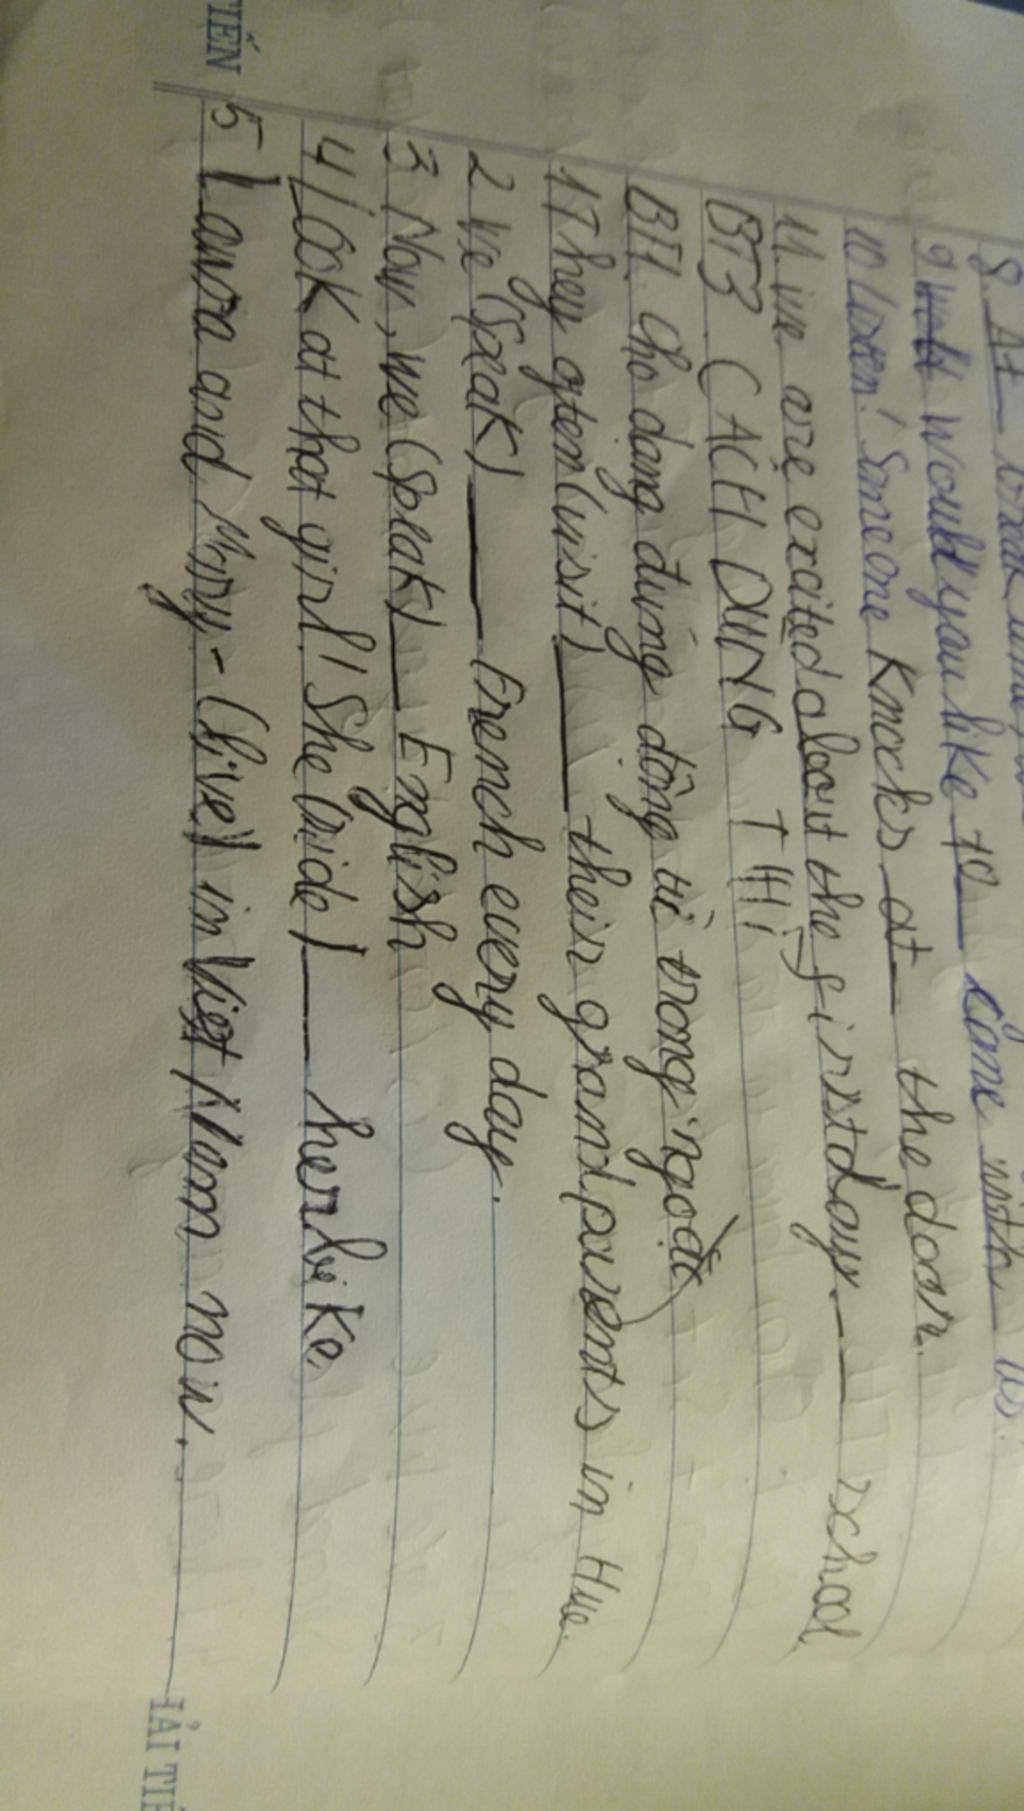 8. At break time,
9 would you like to come with us?
10 Listen! Someone Knocks at the door.
11. we are excited about the first day. school.
BT3 CÁCH DÙNG THÌ
BT1. cho dạng đúng động từ trong ngoặc
1 They often (visit) ___ their grandparents in Hue.
2 We (Speak) ___ French every day.
3 Now, we (Speak) ___ English
4 look at that girl! She (ride) ___ her bike.
5 Laura and Mary - (live) in Viet Nam now.
TIẾN
HẢI TIẾ